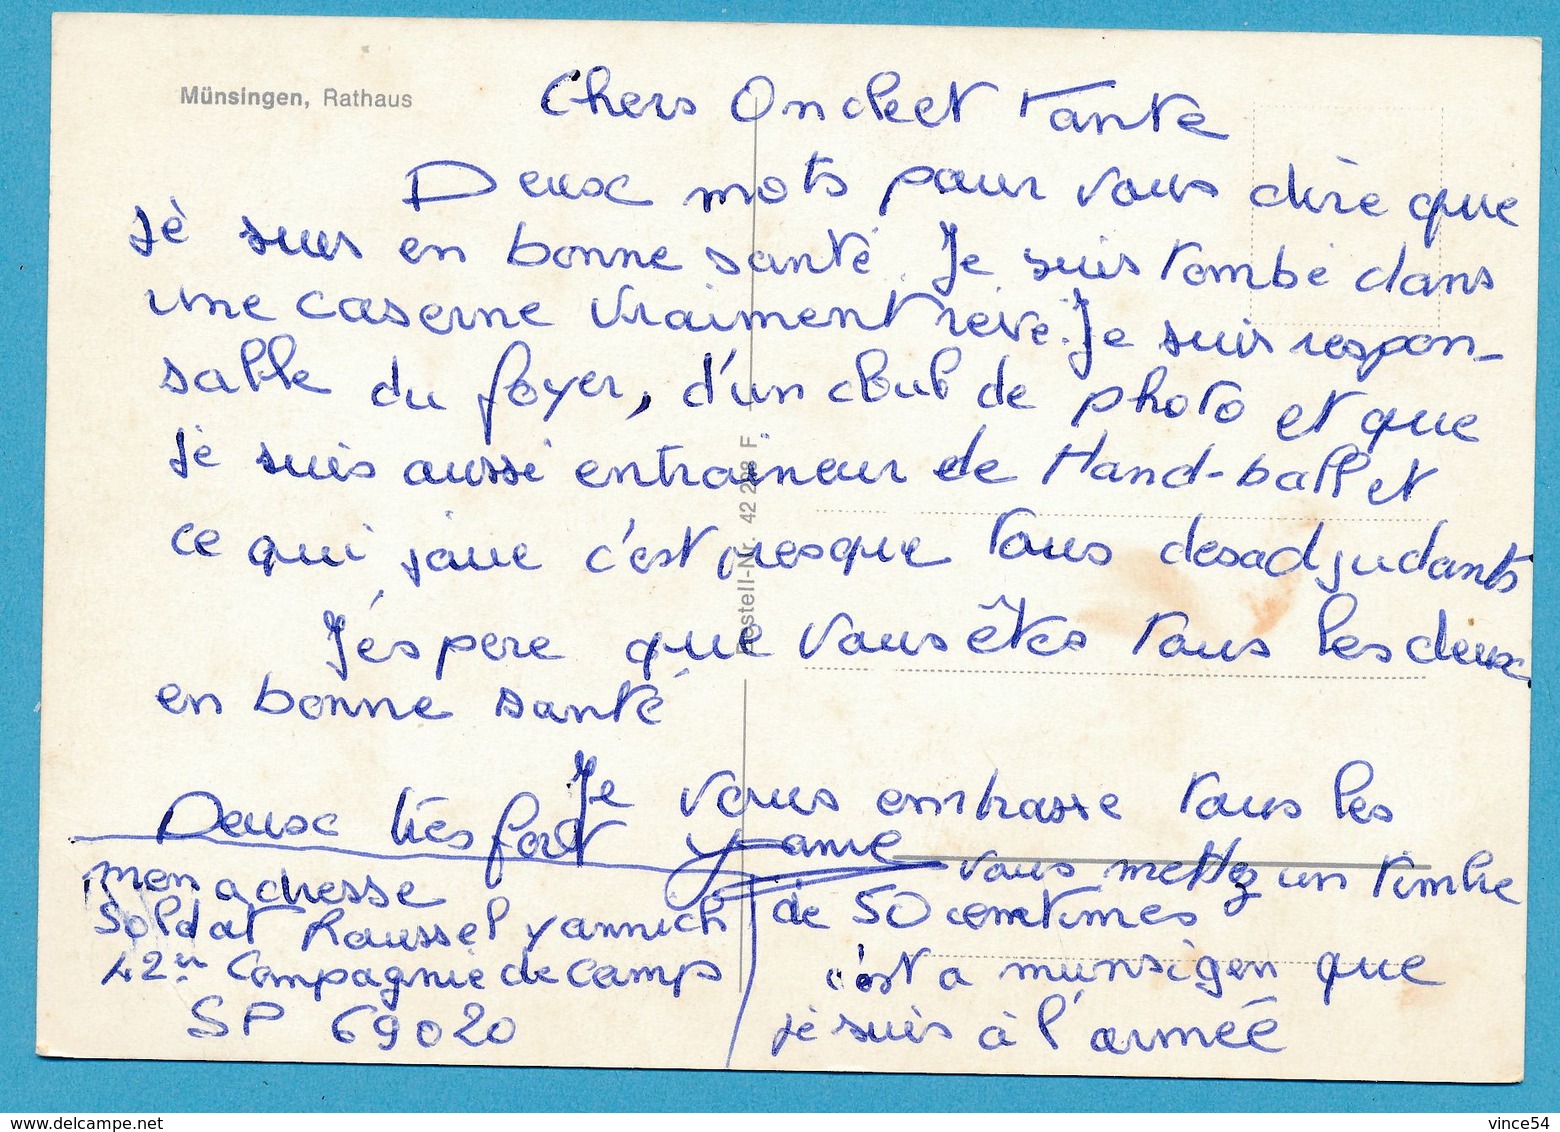 Münsingen, Rathaus
Chers Oncle et Tante
Deux mots pour vous dire que
je suis en bonne santé. Je suis tombé dans
une caserne vraiment rêvé. Je suis respon-
sable du foyer, d'un club de photo et que
je suis aussi entraineur de Hand-ball et
ce qui joue c'est presque tous des adjudants
J'éspere que vous êtes tous les deux
en bonne santé
Je vous embrasse tous les
Deux très fort
mon adresse
Soldat Roussel yannick
42 Compagnie de camp
SP 69020
vous mettez un timbre
de 50 centimes
c'est a munsigen que
je suis à l'armée
Bestell-Nr. 42 298 F
delcampe.net
vince54